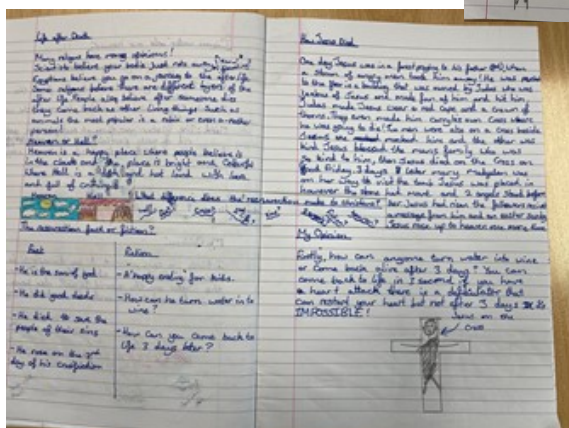 Life after Death
Many religons have many opinions!
Jewish's believe your body just rots away
Egyptians believe you go on a journey to the afterlife.
Some religons believe there are different layers of the
after life. People also believe after someone dies
they come back as other living things such as
animals the most popular is a robin or even a nother
person!
Heaven or Hell?
Heaven is a happy place where people believe is
in the clouds and the place is bright and colourful
where Hell is a hot land with lava
and full of
What difference does the resurrection make to christians?
The resurrection fact or fiction?
Fact
- He is the son of god
- He did good deeds
- He died to save the
people of their sins
- He rose on the 3rd
day of his crucifixion
Fiction
- A "happy ending" for kids.
- How can he turn water in to
wine?
- How can you come back to
life 3 days later?
How Jesus Died
One day Jesus was in a forest praying to his father when
a storm of angry men took him away! He was
to the in a building that was owned by Judas who was
jealous of Jesus and made fun of him and hit him,
Judas made Jesus wear a robe and a crown of
thorns. They even made him carry his own Cross where
he was going to die! Two men were also on a cross beside
Jesus one mocked him and the other was
kind Jesus blessed the man's family who was
so kind to him, then Jesus died on the Cross on
Friday. 3 days later mary magdalen was
on her way to visit the tomb Jesus was placed in
however the stone had moved and 2 angels stood before
her Jesus had risen the followers received
a message from him and on easter sunday
Jesus rose up to heaven once more
My Opinion
Firstly, how can anyone turn water into wine
or come back alive after 3 days? You can
come back to life in 1 second if you have
a heart attack there is a difibulator that
can restart your heart but not after 3 days it is
IMPOSSIBLE!
Jesus on the
cross